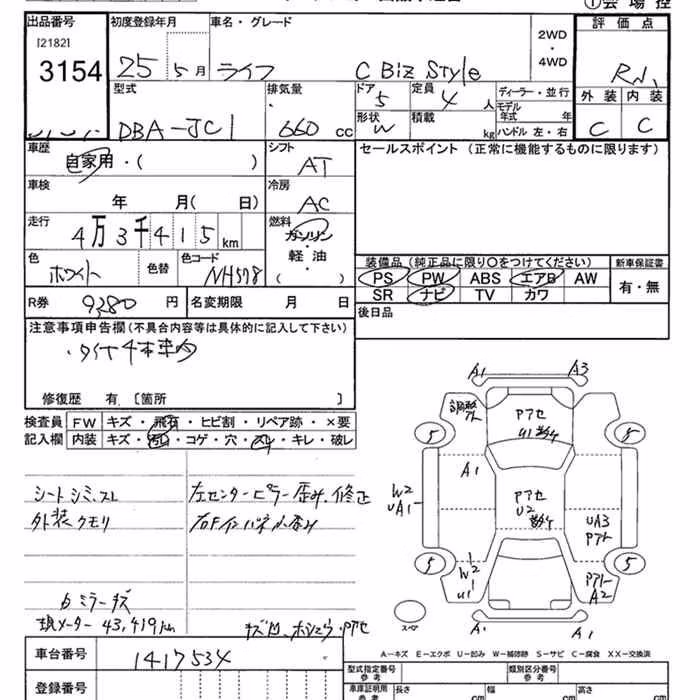 出品番号 初度登録年月 車名・グレード 2WD ・ 4WD 評価点
[2182]
3154 25年 5月 ライフ C Biz Style R
型式 排気量 ドア 5 定員 4人 ディーラー・並行 外装 内装
DBA-JC1 660cc 形状 W 積載 kg モデル年式 年 ハンドル 左・右 C C
車歴 シフト セールスポイント(正常に機能するものに限ります)
自家用・( ) AT
車検 冷房
年 月( 日) AC
走行 燃料
4万3千415km ガソリン・軽油( )
色 色替 色コード 装備品(純正品に限り○をつけてください) 新車保証書
ホワイト NH578 PS PW ABS エアB AW 有・無
SR ナビ TV カワ
R券 9280円 名変期限 月 日 後日品
注意事項申告欄(不具合内容等は具体的に記入して下さい)
・タイヤ4本車内
修復歴 有〔箇所 〕
検査員記入欄 FW キズ・飛石・ヒビ割・リペア跡・×要
内装 キズ・汚れ・コゲ・穴・スレ・キレ・破レ
シートシミ、スレ 左センターピラー歪み、修正
外装クモリ 右Fインパネ小歪み
ミラーキズ
現メーター 43,419km キズ凹、ホシュウ、Pアセ
A1 A3
Pアセ
U1
5 5
A1
W2 UA1
Pアセ
U2
UA3
Pアト
W2 U1
5 5
Pアト A2
スペア
A1 A1
A-キズ E-エクボ U-凹み W-補修跡 S-サビ C-腐食 XX-交換済
車台番号 1417534
型式指定番号 参考 類別区分番号 参考
登録番号
車庫証明用 参考 長さ cm 幅 cm 高さ cm